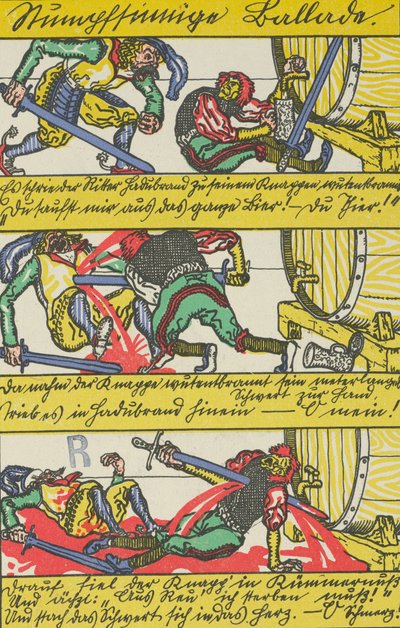 Stumpfsinnige Ballade.
Es schrie der Ritter Hadubrand zu seinem Knappen wutentbrannt
"Du saufst mir aus das ganze Bier! – Du Tier!"
Da nahm der Knappe wutentbrannt sein meterlanges
Schwert zur Hand.
Trieb es in Hadubrand hinein — O mein!
R
Drauf fiel der Knapp' in Kümmernuß
Und ächzt: "Aus Reu' ich sterben muß!"
Und stach das Schwert sich in das Herz. — O Schmerz.